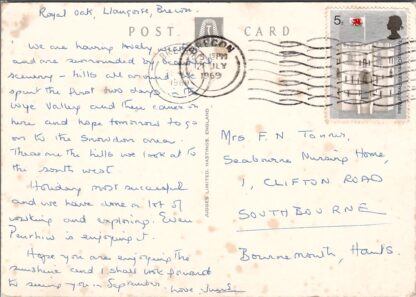 Royal Oak, Llangorse, Brecon.
POST CARD
We are having lovely weather
and are surrounded by beautiful
scenery - hills all around. We
spent the first two days in the
Wye Valley and then came on
here and hope tomorrow to go
on to the Snowdon area.
These are the hills we look at to
the south west
Holiday most successful
and we have done a lot of
walking and exploring. Even
is enjoying it.
Hope you are enjoying the
sunshine and I shall look forward
to seeing you in September.
Love
BRECON
PM
JLY
1969
5D
JUDGES LIMITED, HASTINGS, ENGLAND
Mrs F. N. Tanner,
Seabourne Nursing Home,
1, CLIFTON ROAD
SOUTHBOURNE
Bournemouth, Hants.